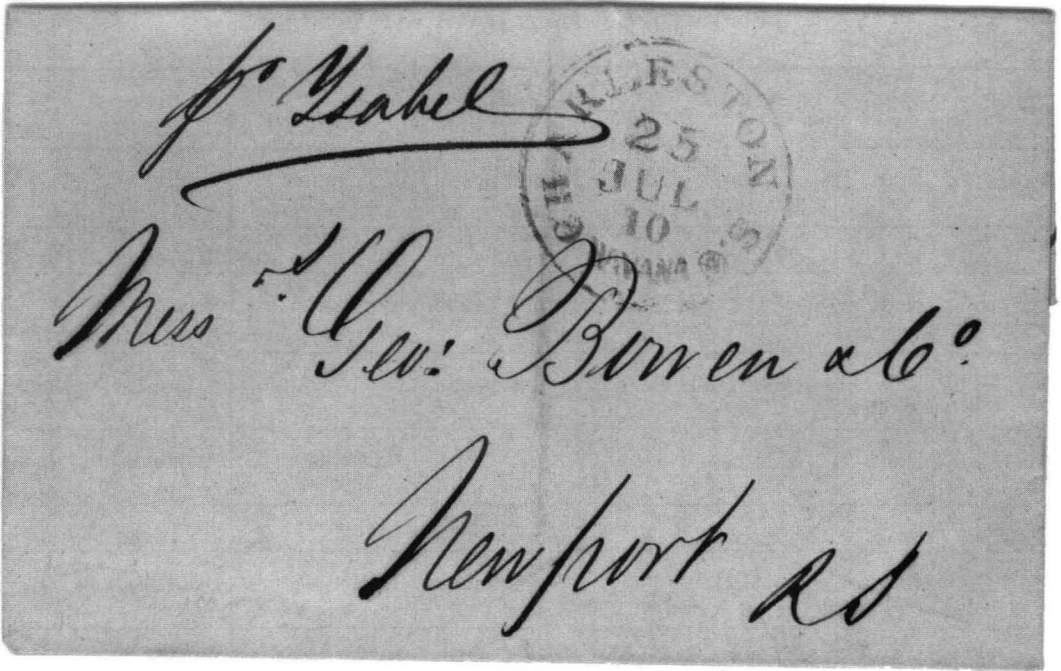 pr Ysabel
CHARLESTON S.
25
JUL
10
Messrs. Geo: Bowen & Co.
Newport RI